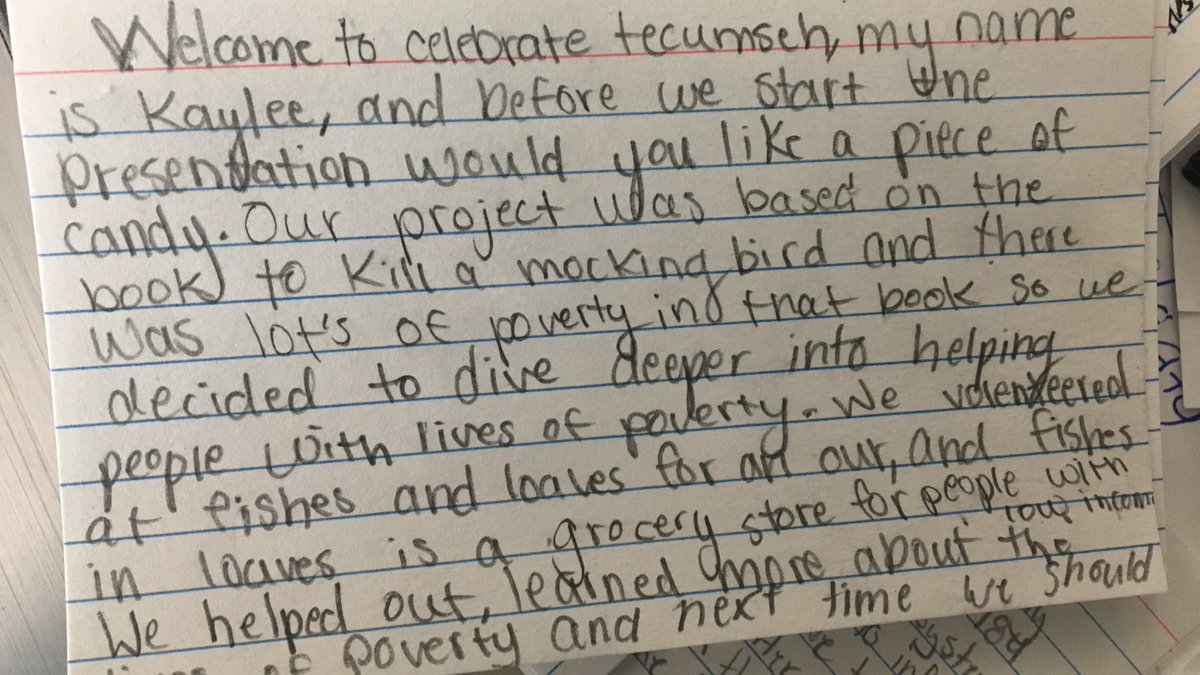 Welcome to celebrate tecumseh, my name
is Kaylee, and before we start the
presentation would you like a piece of
candy. Our project was based on the
book to Kill a mocking bird and there
was lot's of poverty in that book so we
decided to dive deeper into helping
people with lives of poverty. We volenteered
at fishes and loaves for an our, and fishes
in loaves is a grocery store for people with
low incom
We helped out, learned more about the
poverty and next time we should